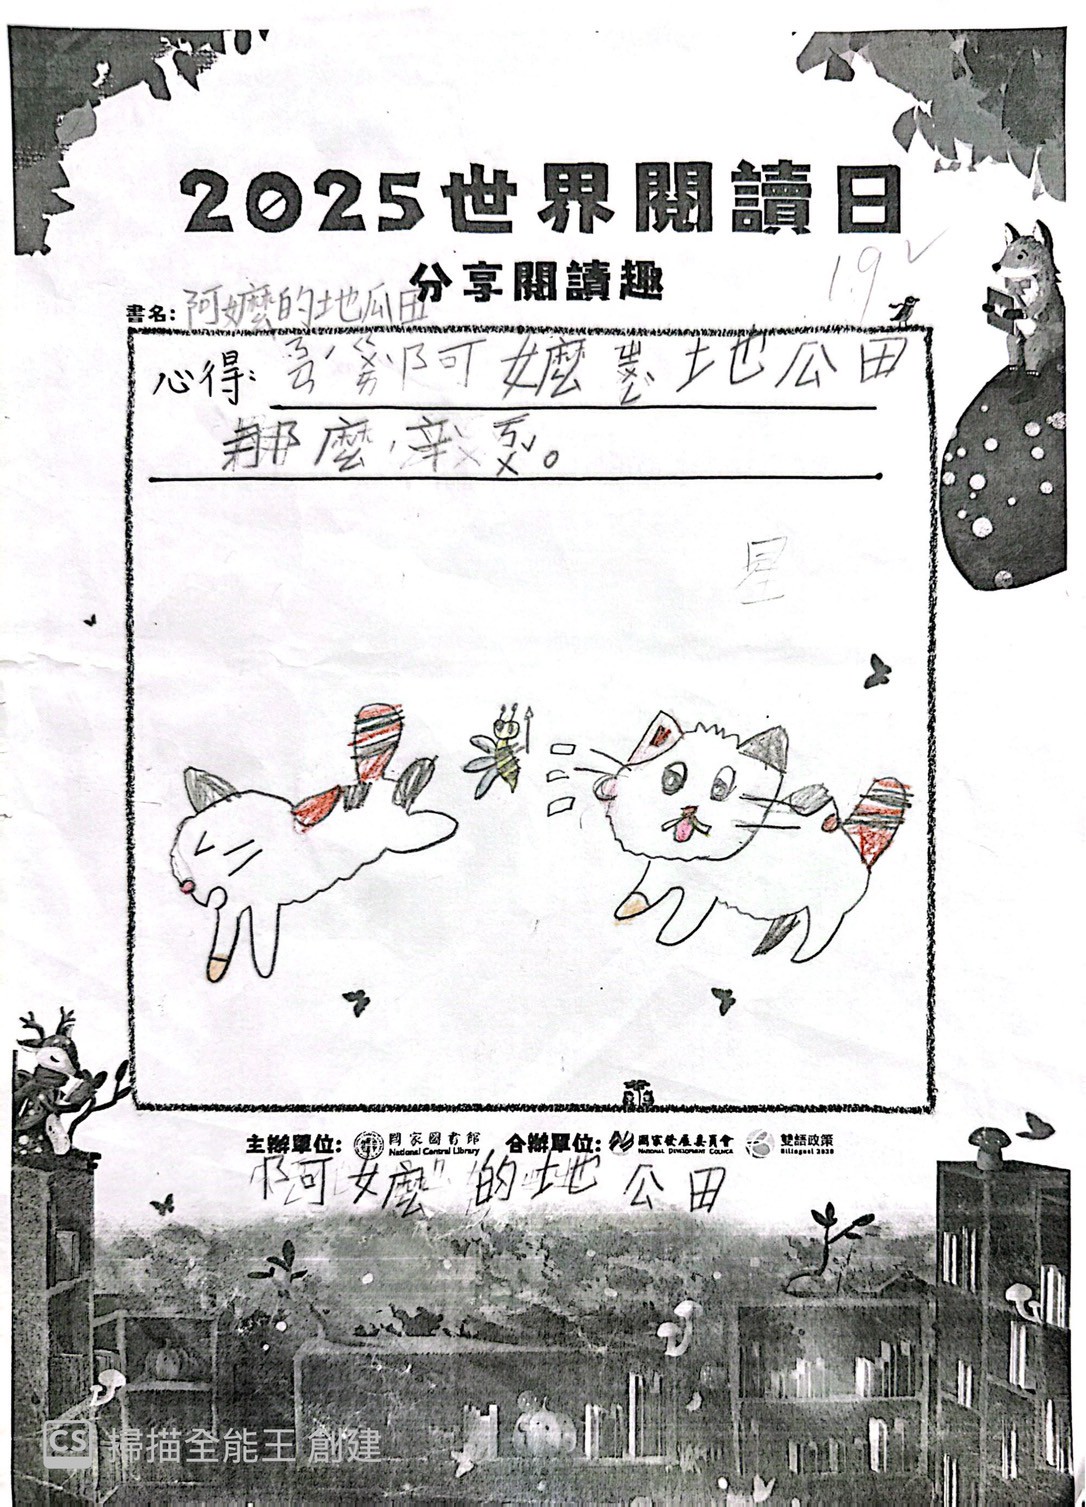 2025世界閱讀日
分享閱讀趣
1.9
書名: 阿嬤的地瓜田
心得: ㄢˊ 阿嬤 地公田
那麼辛ㄎㄨˇ。
星
主辦單位: 國家圖書館 National Central Library 合辦單位: 國家發展委員會 NATIONAL DEVELOPMENT COUNCIL 雙語政策 Bilingual 2030
阿嬤的地公田
CS 掃描全能王 創建